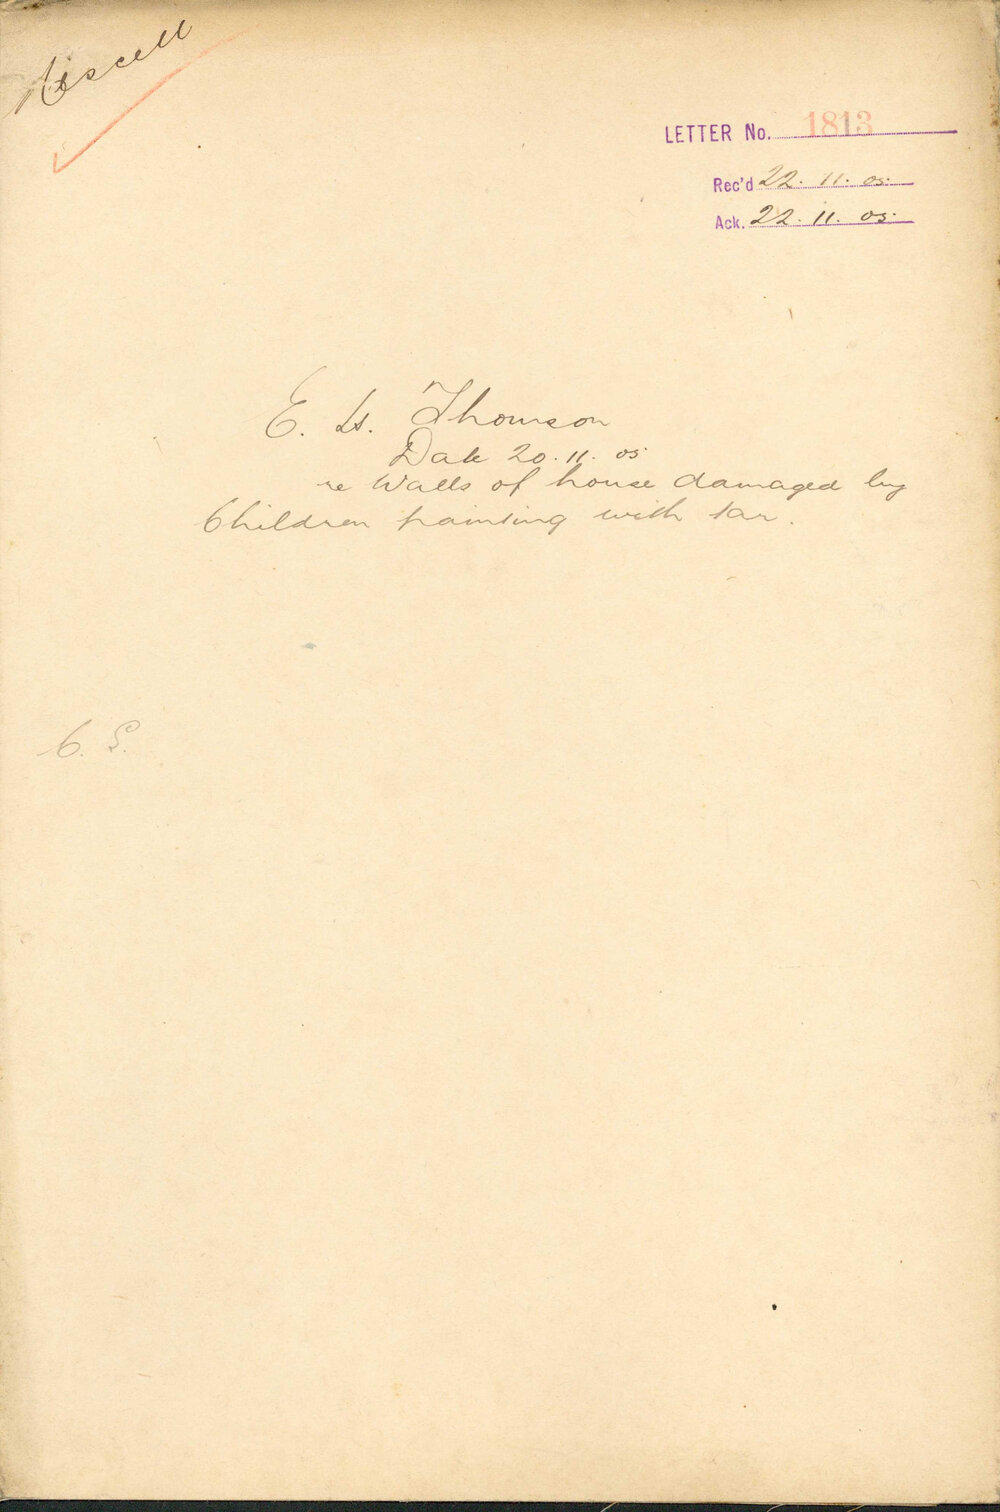 LETTER No. 1813
Rec'd 22.11.05
Ack. 22.11.05
Thomson
Date 20.11.05
re Walls of house damaged by
Children painting with tar.